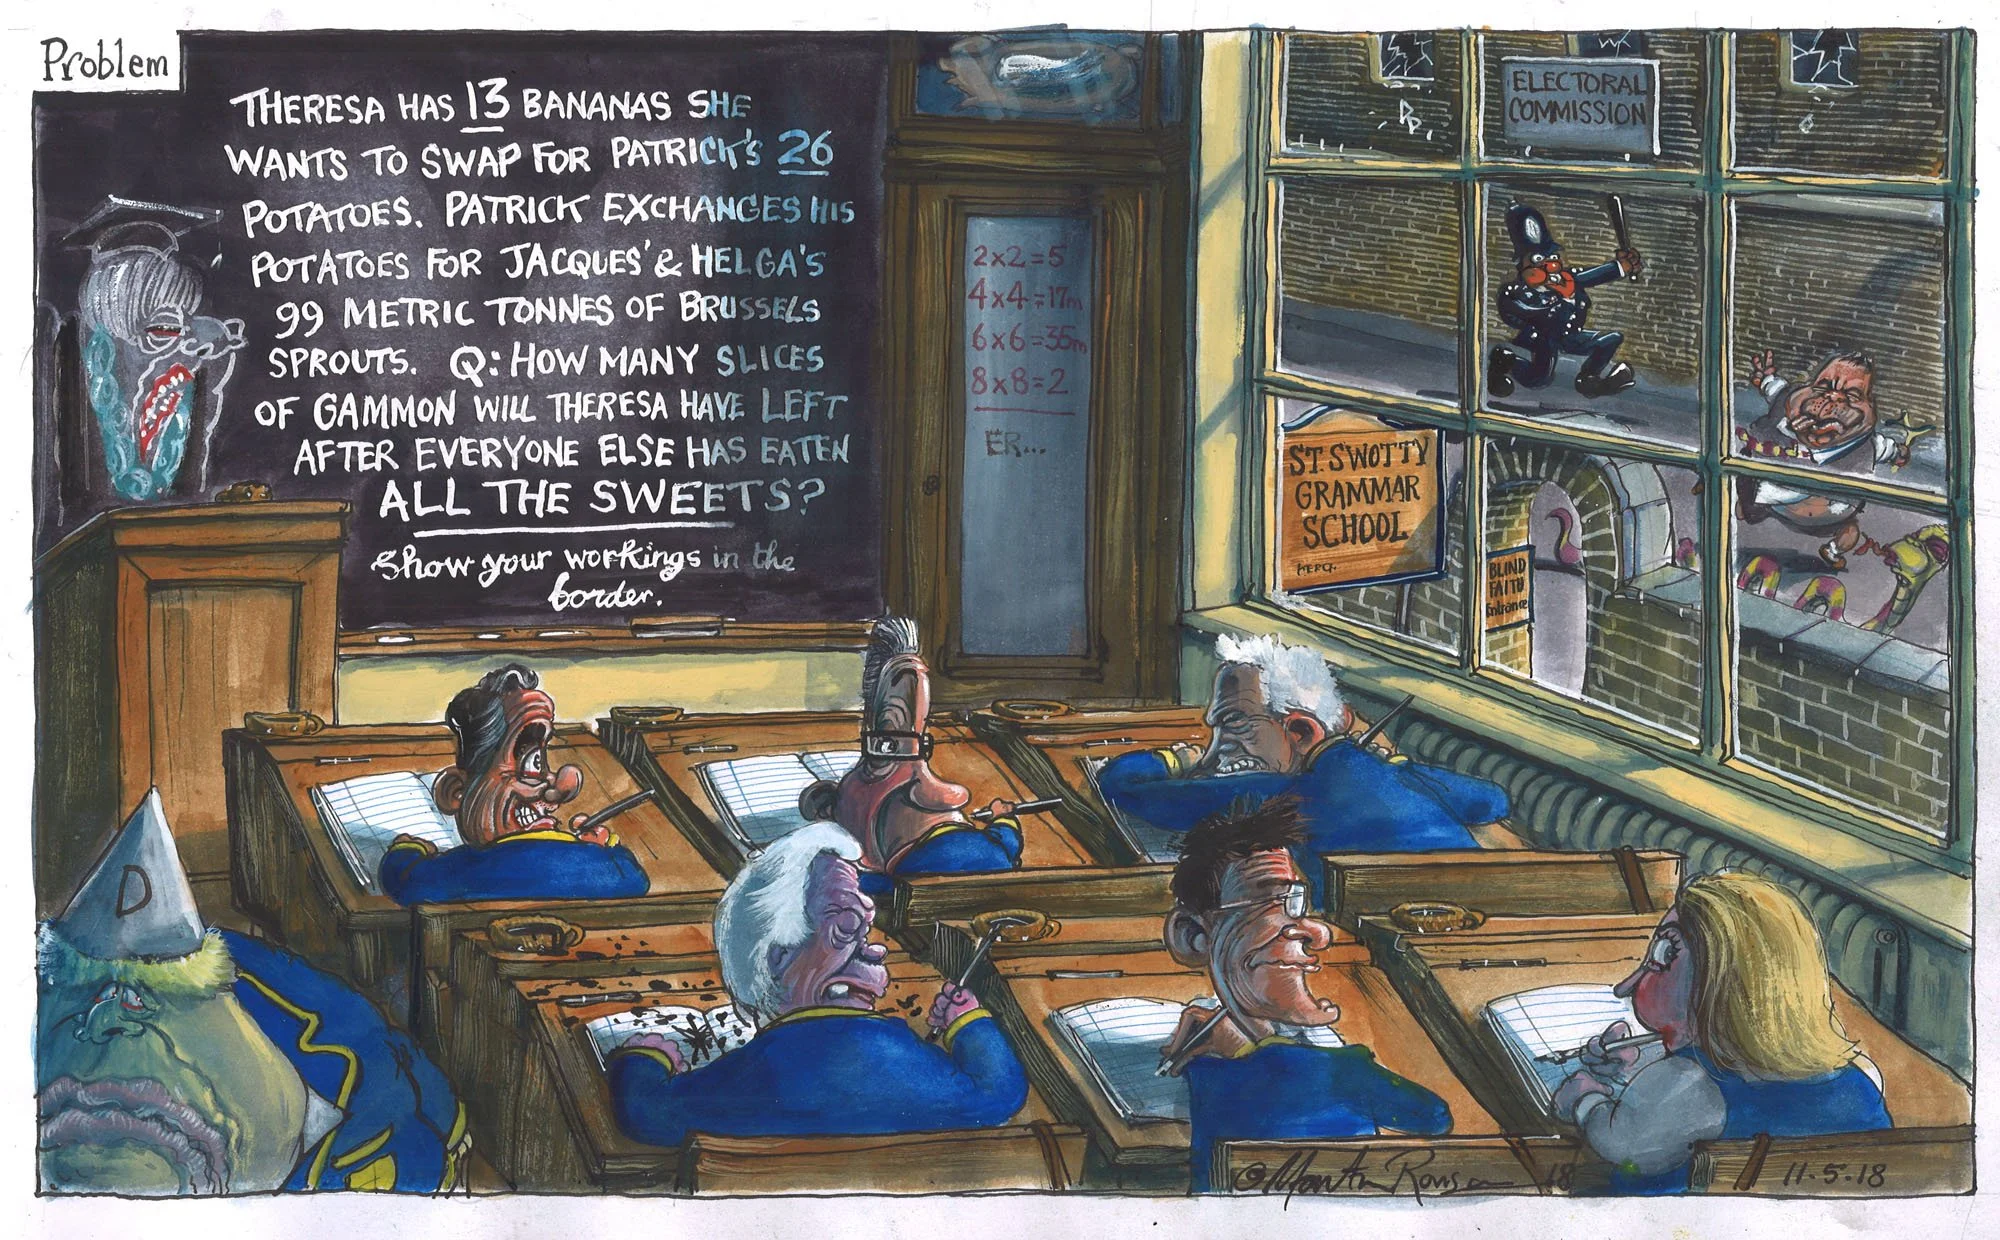 Problem
THERESA HAS 13 BANANAS SHE
WANTS TO SWAP FOR PATRICK'S 26
POTATOES. PATRICK EXCHANGES HIS
POTATOES FOR JACQUES' & HELGA'S
99 METRIC TONNES OF BRUSSELS
SPROUTS. Q: HOW MANY SLICES
OF GAMMON WILL THERESA HAVE LEFT
AFTER EVERYONE ELSE HAS EATEN
ALL THE SWEETS?
Show your workings in the
border.
2x2=5
4x4=17m
6x6=35m
8x8=2
ER...
ELECTORAL
COMMISSION
ST. SWOTTY
GRAMMAR
SCHOOL
BLIND
FAITH
Entrance
D
© Martin Rowson 18
11.5.18